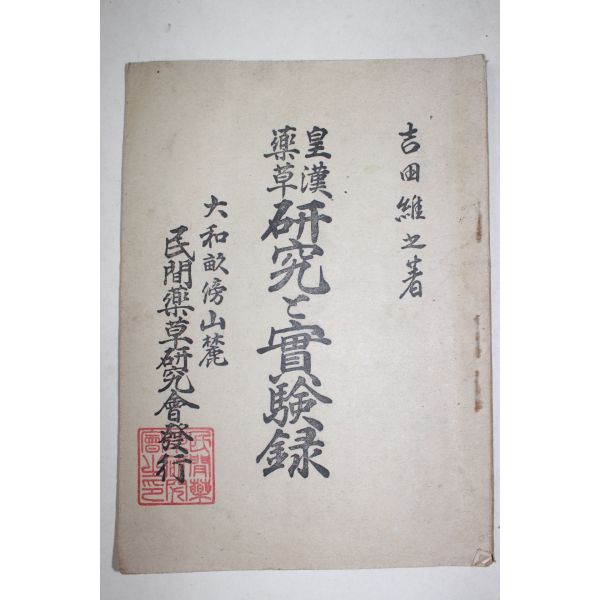 吉田維之著
皇漢
薬草
研究と實験録
大和畝傍山麓
民間薬草研究會發行